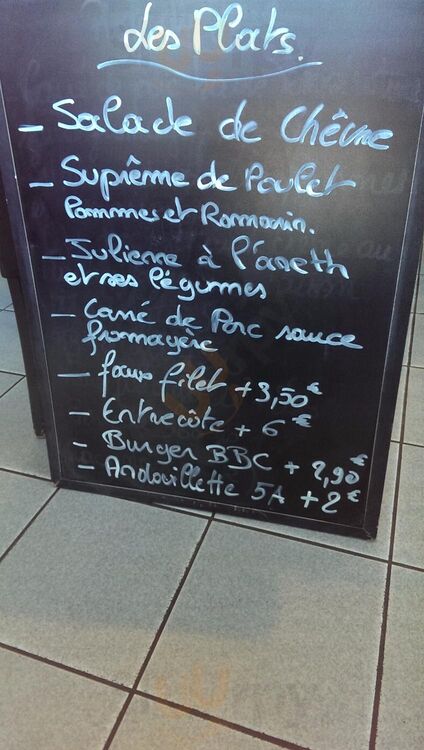 Les Plats.
- Salade de Chêvre
- Suprême de Poulet
Pommes et Romarin.
- Julienne à l'aneth
et ses légumes
- Carré de Porc sauce
fromagère
- faux filet + 3,50€
- Entrecôte + 6€
- Burger BBC + 2,90€
- Andouillette 5A + 2€